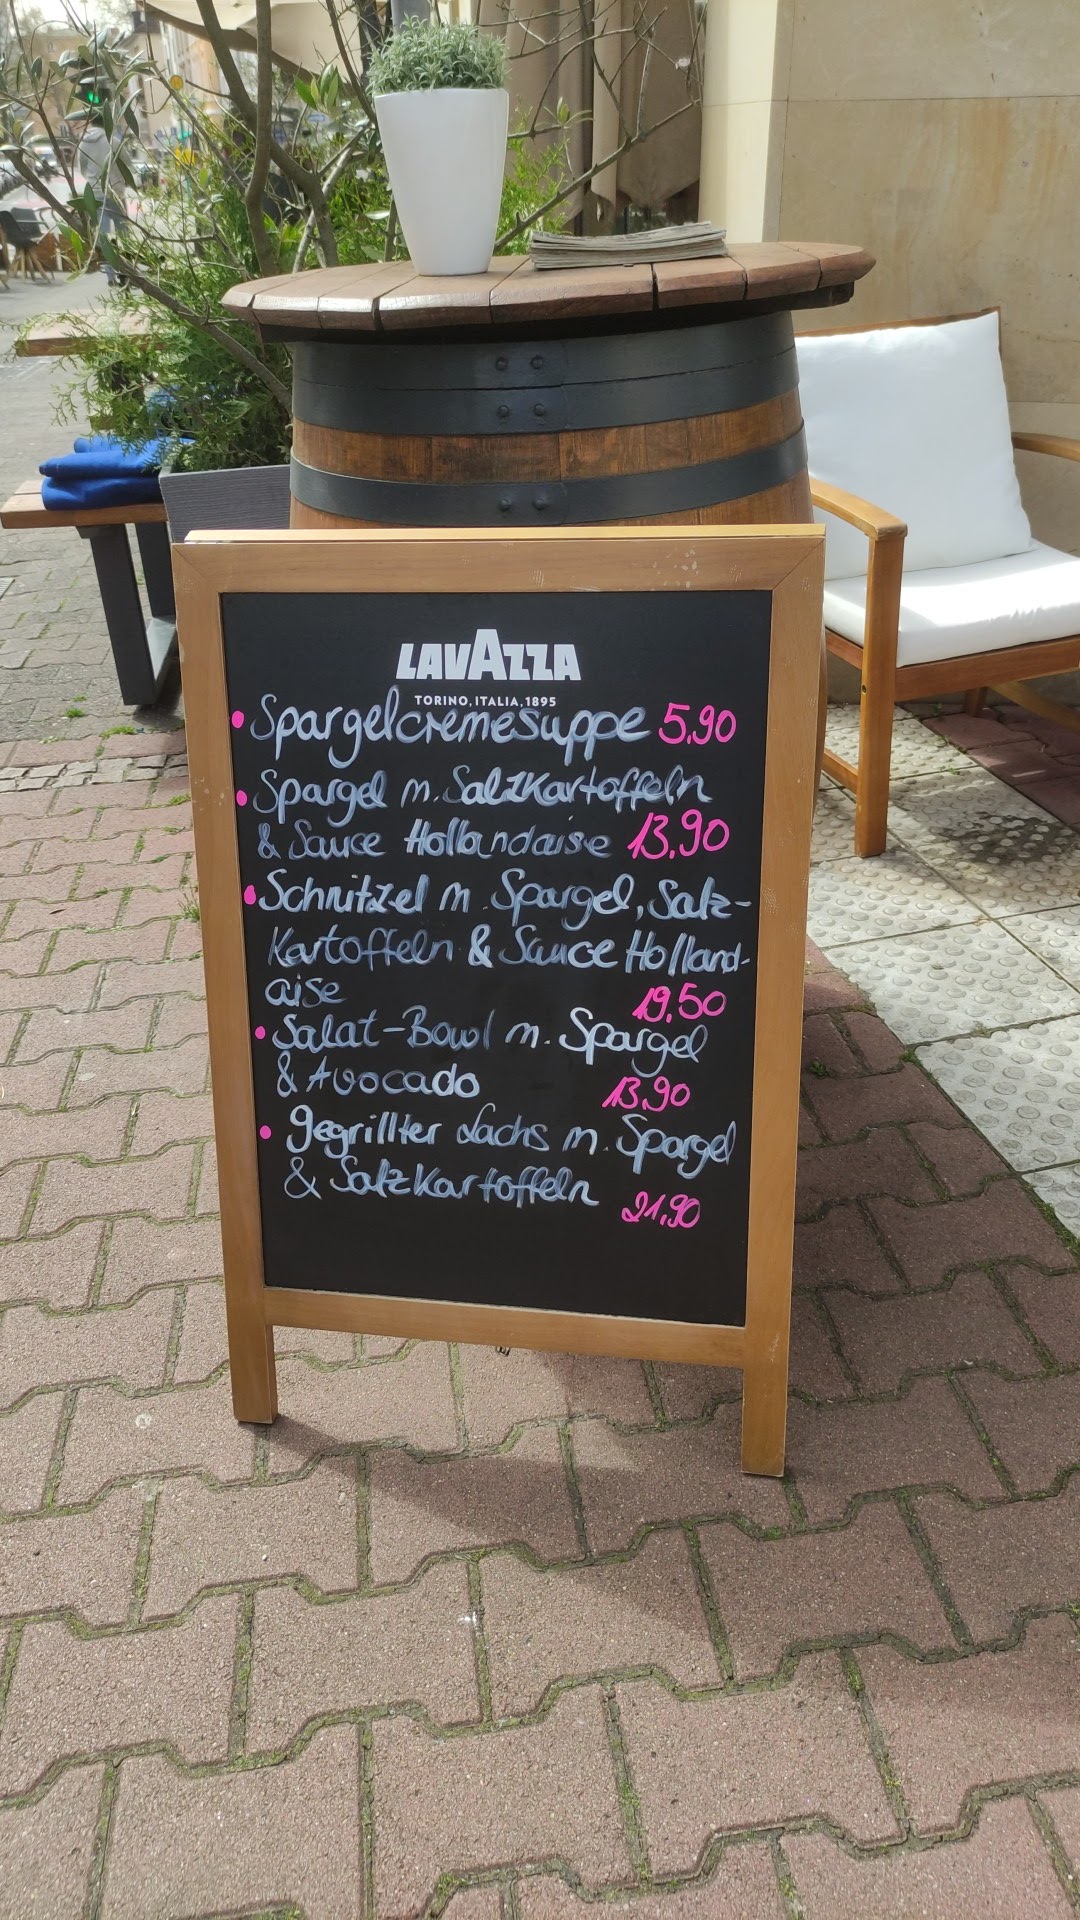 LAVAZZA
TORINO, ITALIA, 1895
• Spargelcremesuppe 5,90
• Spargel m. Salzkartoffeln
& Sauce Hollandaise 13,90
• Schnitzel m. Spargel, Salz-
Kartoffeln & Sauce Holland-
aise 19,50
• Salat-Bowl m. Spargel
& Avocado 13,90
• gegrillter Lachs m. Spargel
& Salzkartoffeln 21,90